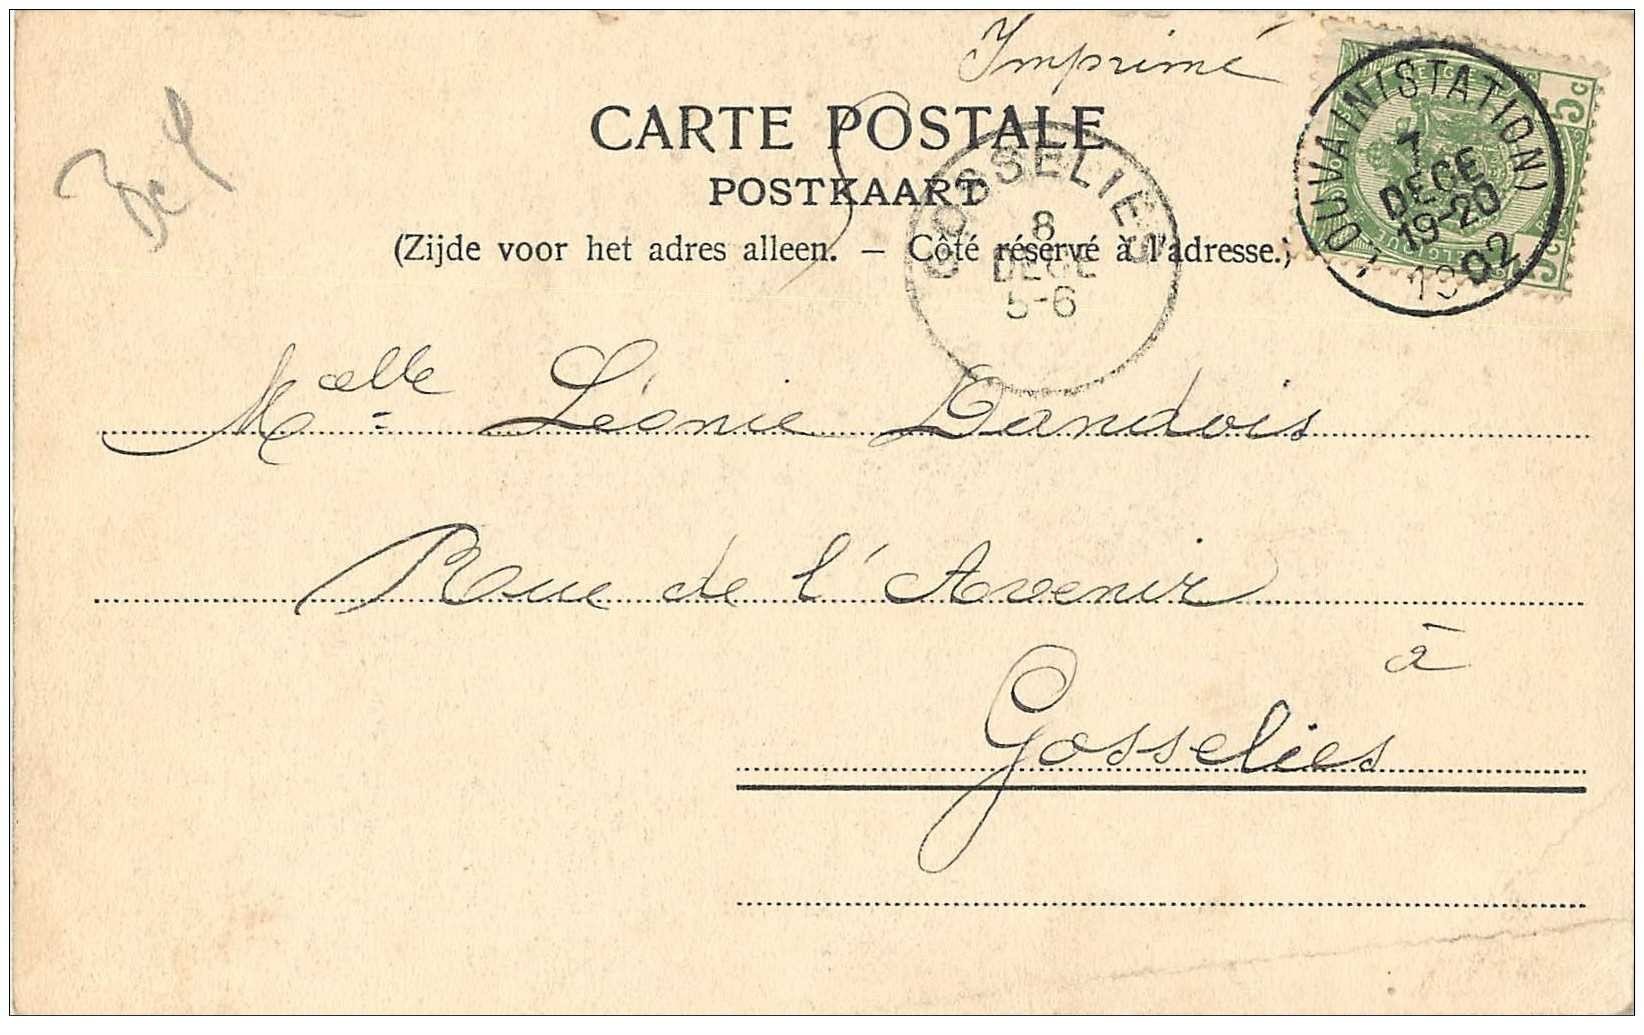 Imprimé
CARTE POSTALE
POSTKAART
(Zijde voor het adres alleen. — Côté réservé à l'adresse.)
LOUVAIN (STATION)
7
DECE
19-20
1902
5c
5c
GOSSELIES
8
DECE
5-6
Maelle Léonie Dandois
Rue de l'Avenir
à
Gosselies